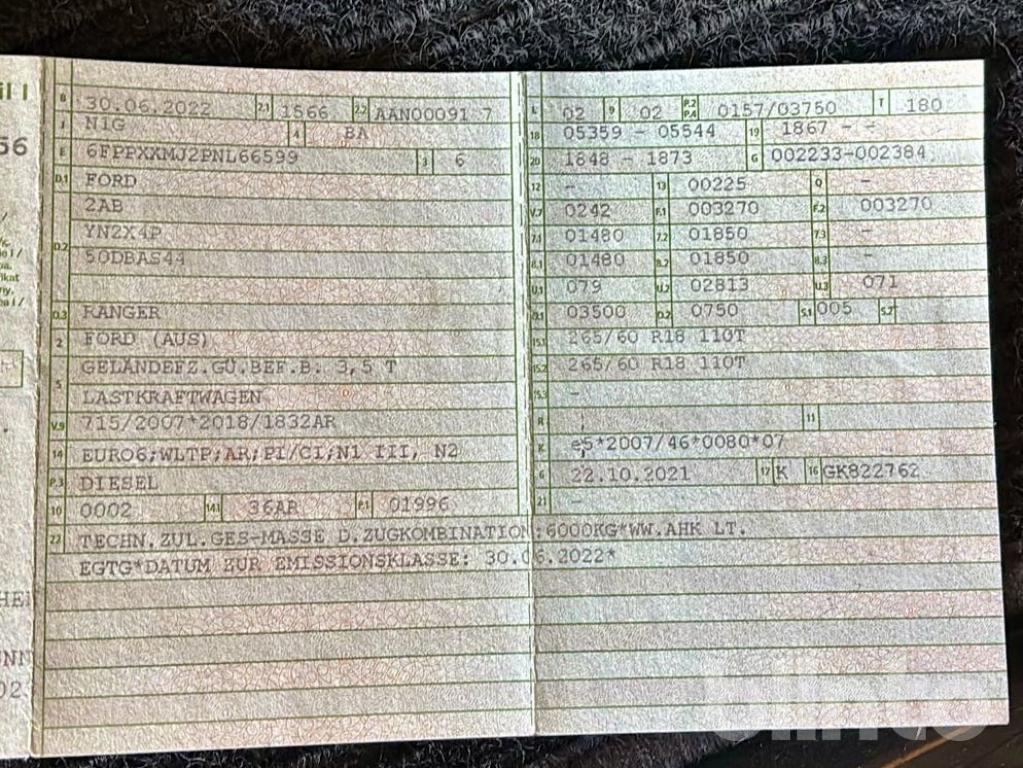 il I
56
B 30.06.2022 2.1 1566 2.2 AAN00091 7
J N1G 4 BA
E 6FPPXXMJ2PNL66599 3 6
D.1 FORD
2AB
D.2 YN2X4P
5ODBAS44
D.3 RANGER
2 FORD (AUS)
5 GELÄNDEFZ.GÜ.BEF.B. 3,5 T
LASTKRAFTWAGEN
V.9 715/2007*2018/1832AR
14 EURO6;WLTP;AR;PI/CI;N1 III, N2
P.3 DIESEL
10 0002 14.1 36AR P.1 01996
L 02 9 02 P.2 P.4 0157/03750 T 180
18 05359 - 05544 19 1867 - -
20 1848 - 1873 G 002233-002384
12 - 13 00225 Q -
V.7 0242 F.1 003270 F.2 003270
7.1 01480 7.2 01850 7.3 -
8.1 01480 8.2 01850 8.3 -
U.1 079 U.2 02813 U.3 071
O.1 03500 O.2 0750 S.1 005 S.2
15.1 265/60 R18 110T
15.2 265/60 R18 110T
15.3 -
R 11
K e5*2007/46*0080*07
6 22.10.2021 17 K 16 GK822762
21 -
22 TECHN.ZUL.GES-MASSE D.ZUGKOMBINATION:6000KG*WW.AHK LT.
EGTG*DATUM ZUR EMISSIONSKLASSE: 30.06.2022*
HEI
UNN
023